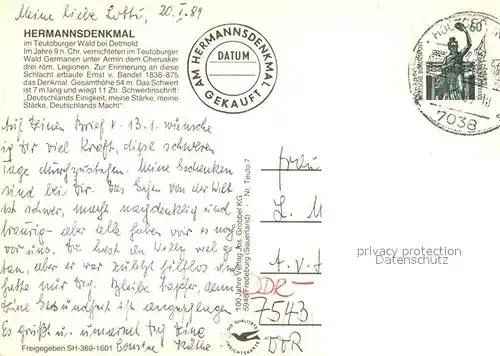 Meine liebe Lotti, 20.I.89
HERMANNSDENKMAL
im Teutoburger Wald bei Detmold
Im Jahre 9 n. Chr. vernichteten im Teutoburger
Wald Germanen unter Armin dem Cherusker
drei röm. Legionen. Zur Erinnerung an diese
Schlacht erbaute Ernst v. Bandel 1838-875
das Denkmal. Gesamthöhe 54 m. Das Schwert
ist 7 m lang und wiegt 11 Ztr. Schwertinschrift:
„Deutschlands Einigkeit, meine Stärke, meine
Stärke, Deutschlands Macht"
AM HERMANNSDENKMAL
DATUM
GEKAUFT
60
7038
Auf Deinen Brief v. 13.1. wünsche
ich Dir viel Kraft, diese schweren
Tage durchzustehen. Meine Gedanken
sind bei Dir. Das von der Welt
ist schwer, macht nachdenklich und
traurig - aber alle haben vor es noch
vor uns. Du hast den Willy viel
aber er war zuletzt hilflos und
Bleibe tapfer, denn
Deine Gesundheit ist angeschlagen
Es grüßt u. umarmt Dich Deine
Cousine Käthe
Freigegeben SH-369-1601
100 Jahre Verlag Jos. Grobbel KG
5948 Fredeburg (Sauerland) Nr. Teuto 7
Frau
L. M
A. v. 
DDR-
7543
DDR
DIE QUALITÄTS
ANSICHTSKARTE
privacy protection
Datenschutz